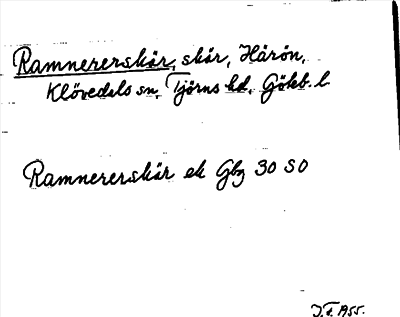 Ramnererskär, skär, Härön,
Klövedals sn, Tjörns hd, Göteb. l.
Ramnererskär ek Gbg 30 SO
1955.